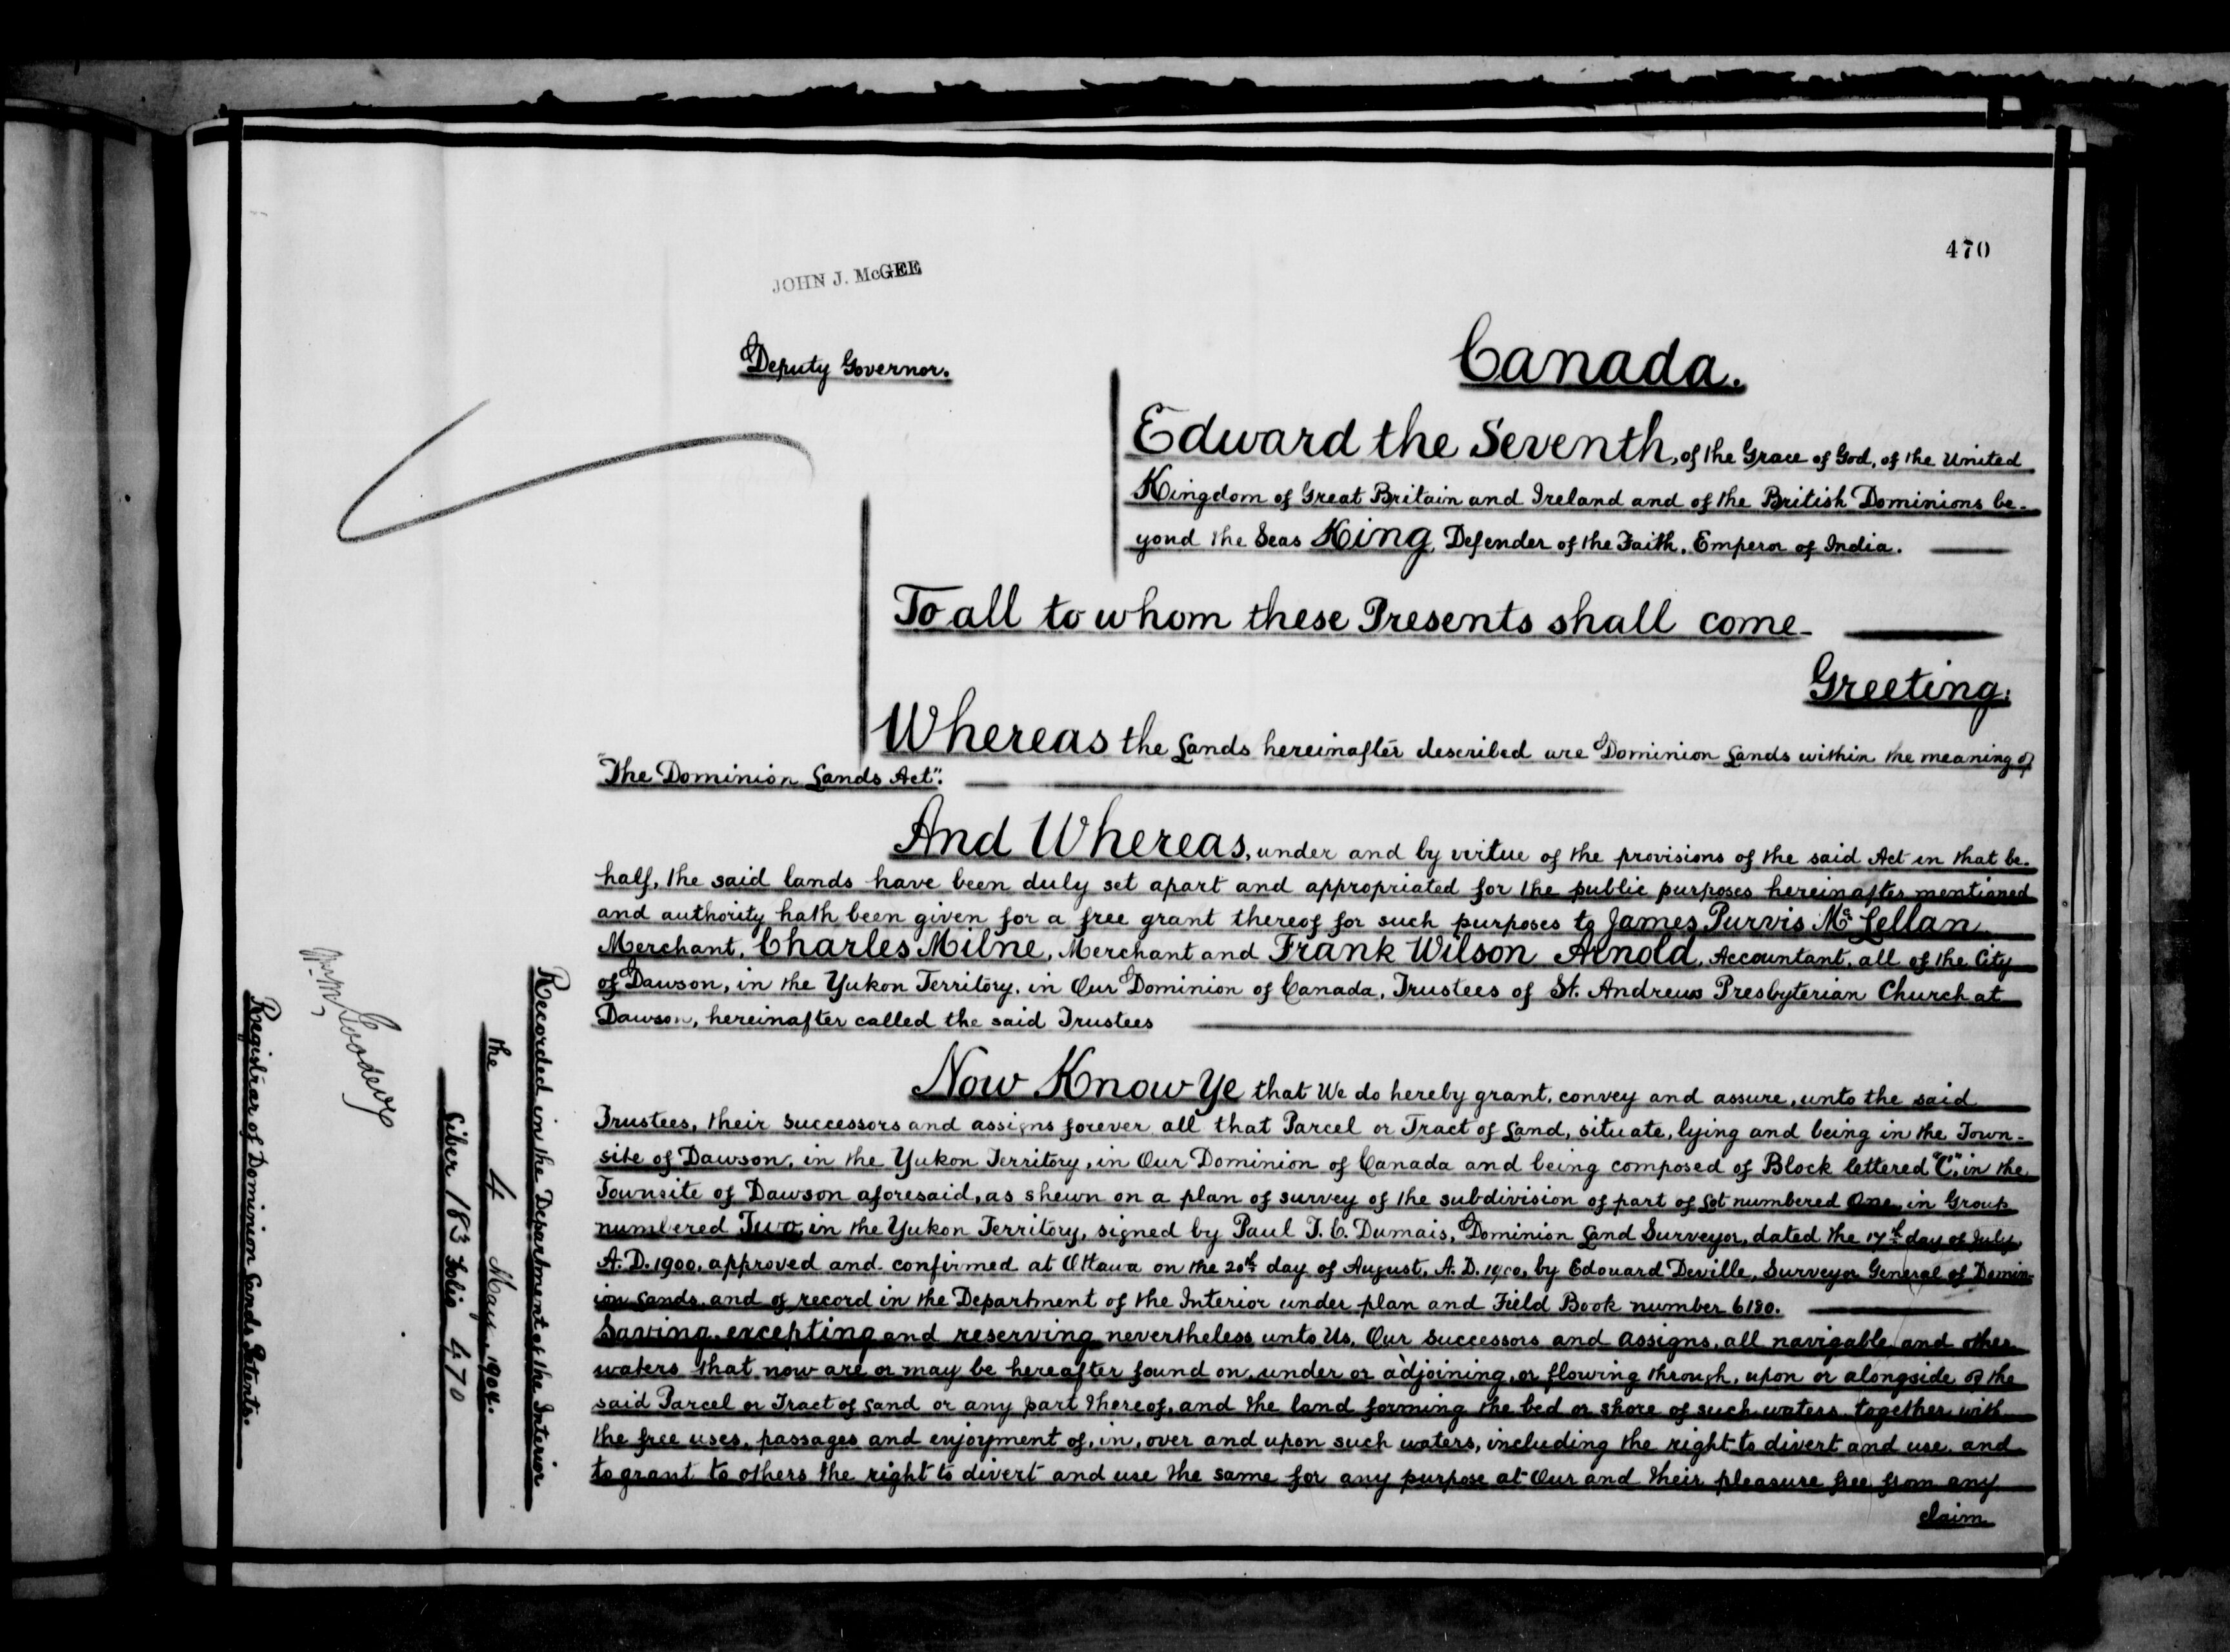 470
JOHN J. McGEE
Deputy Governor.
Canada.
Edward the Seventh, of the Grace of God, of the United
Kingdom of Great Britain and Ireland and of the British Dominions be-
yond the Seas King, Defender of the Faith, Emperor of India.
To all to whom these Presents shall come-
Greeting:
Whereas the Lands hereinafter described are Dominion Lands within the meaning of
"The Dominion Lands Act".
And Whereas, under and by virtue of the provisions of the said Act in that be-
half, the said lands have been duly set apart and appropriated for the public purposes hereinafter mentioned
and authority hath been given for a free grant thereof for such purposes to James Purvis Mc Lellan
Merchant, Charles Milne, Merchant and Frank Wilson Arnold, Accountant, all of the City
of Dawson, in the Yukon Territory, in Our Dominion of Canada, Trustees of St. Andrews Presbyterian Church at
Dawson, hereinafter called the said Trustees
Now Know Ye that We do hereby grant, convey and assure, unto the said
Trustees, their successors and assigns forever all that Parcel or Tract of Land, situate, lying and being in the Town-
site of Dawson, in the Yukon Territory, in Our Dominion of Canada and being composed of Block lettered "C", in the
Townsite of Dawson aforesaid, as shewn on a plan of survey of the subdivision of part of Lot numbered One, in Group
numbered Two, in the Yukon Territory, signed by Paul T. C. Dumais, Dominion Land Surveyor, dated the 17th day of July,
A. D. 1900, approved and confirmed at Ottawa on the 20th day of August, A. D. 1900, by Edouard Deville, Surveyor General of Domin-
ion Lands, and of record in the Department of the Interior under plan and Field Book number 6180.
Saving, excepting and reserving nevertheless unto Us, Our successors and assigns, all navigable and other
waters that now are or may be hereafter found on, under or adjoining, or flowing through, upon or alongside of the
said Parcel or Tract of Land or any part thereof, and the land forming the bed or shore of such waters together with
the free uses, passages and enjoyment of, in, over and upon such waters, including the right to divert and use, and
to grant to others the right to divert and use the same for any purpose at Our and their pleasure free from any
claim
Recorded in the Department of the Interior
the 4 May, 1904.
Liber 183 Folio 470
Wm Goodeve
Registrar of Dominion Lands Patents.